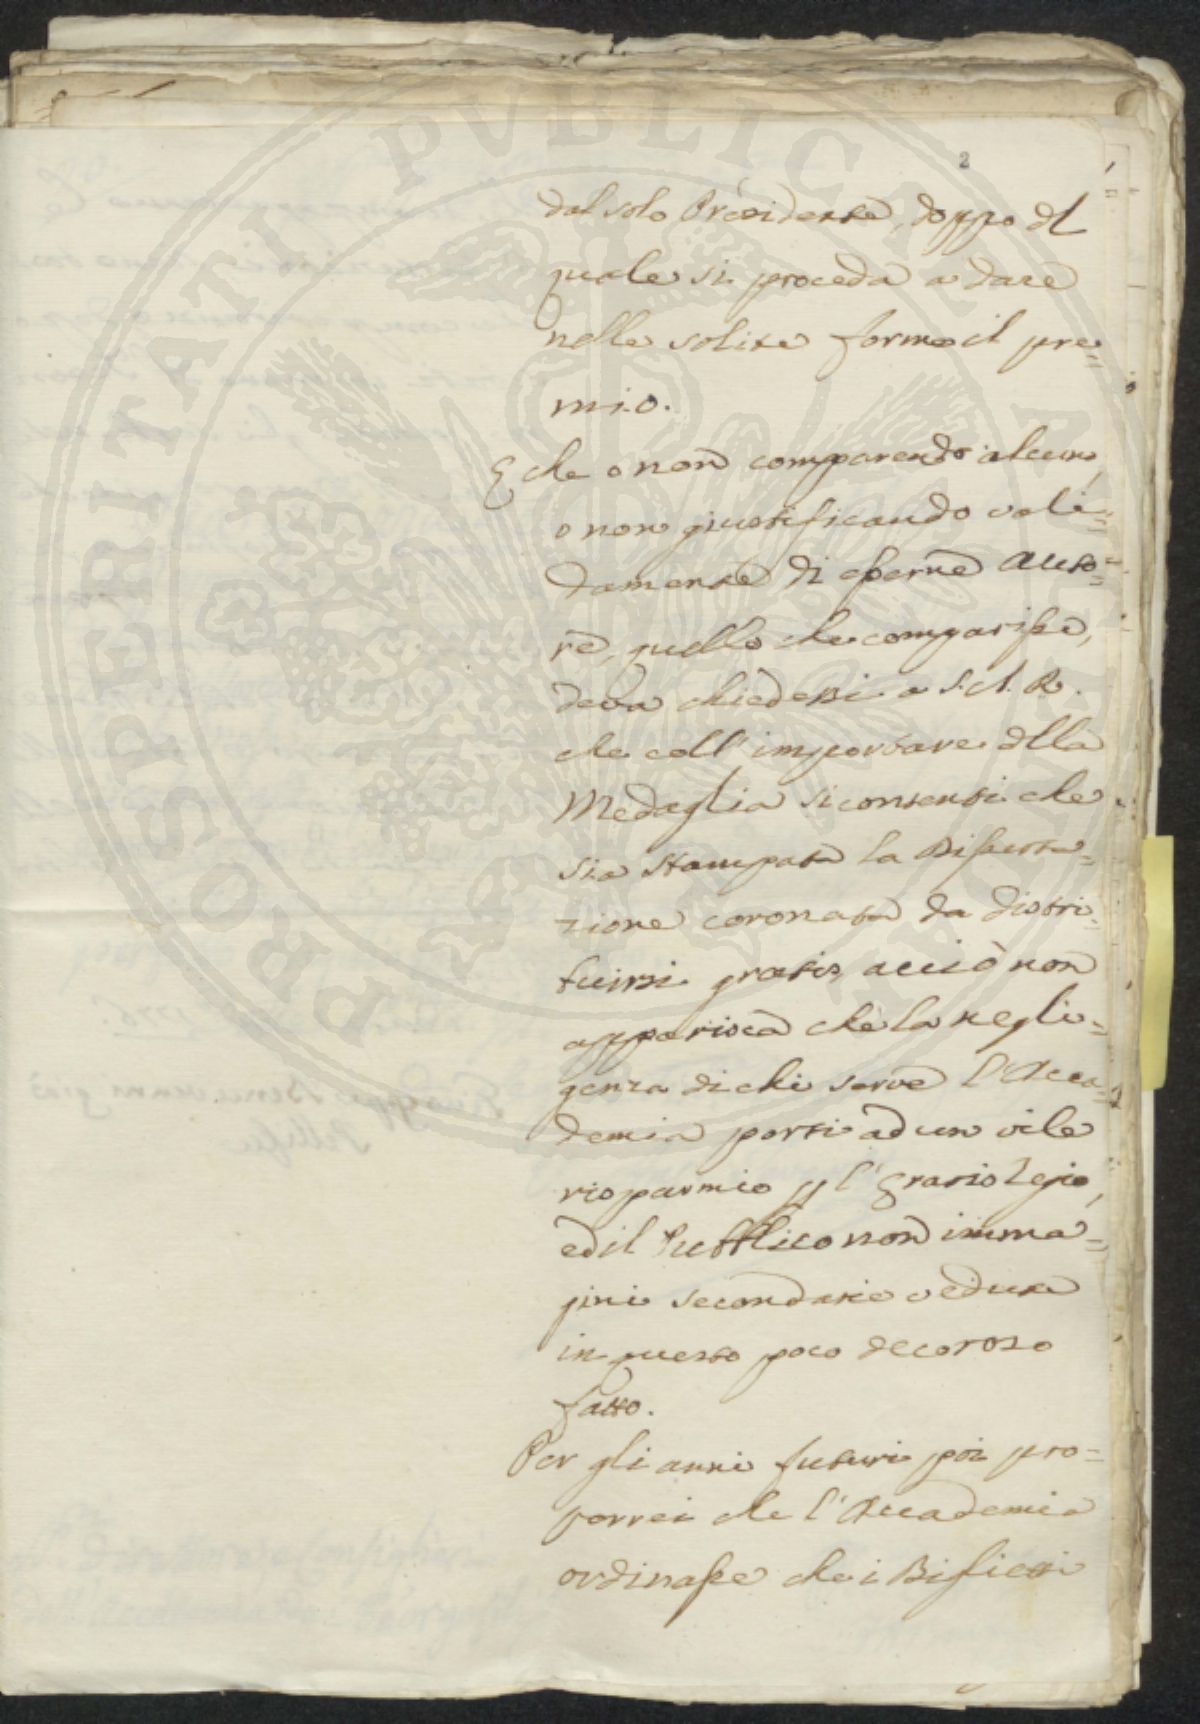 2
dal solo Presidente, doppo del
quale si proceda a dare
nelle solite forme il pre=
mio.
E che o non comparendo alcuno,
o non giustificando vali=
damente di esserne Auto=
re, quello che comparisse,
deva chiedersi a S. A. R.
che coll' importare della
Medaglia si contenti che
sia stampata la Disserta=
zione coronata da distri=
buirsi gratis, acciò non
apparisca che la negli=
genza di chi serve l'Acca=
demia porti ad un vile
risparmio per l'Erario Regio,
ed il Pubblico non imma=
gini secondarie vedute
in questo poco decoroso
fatto.
Per gli anni futuri poi pro=
porrei che l'Accademia
ordinasse che i Biglietti
PROSPERITATI PVBLICAE AVGENDAE